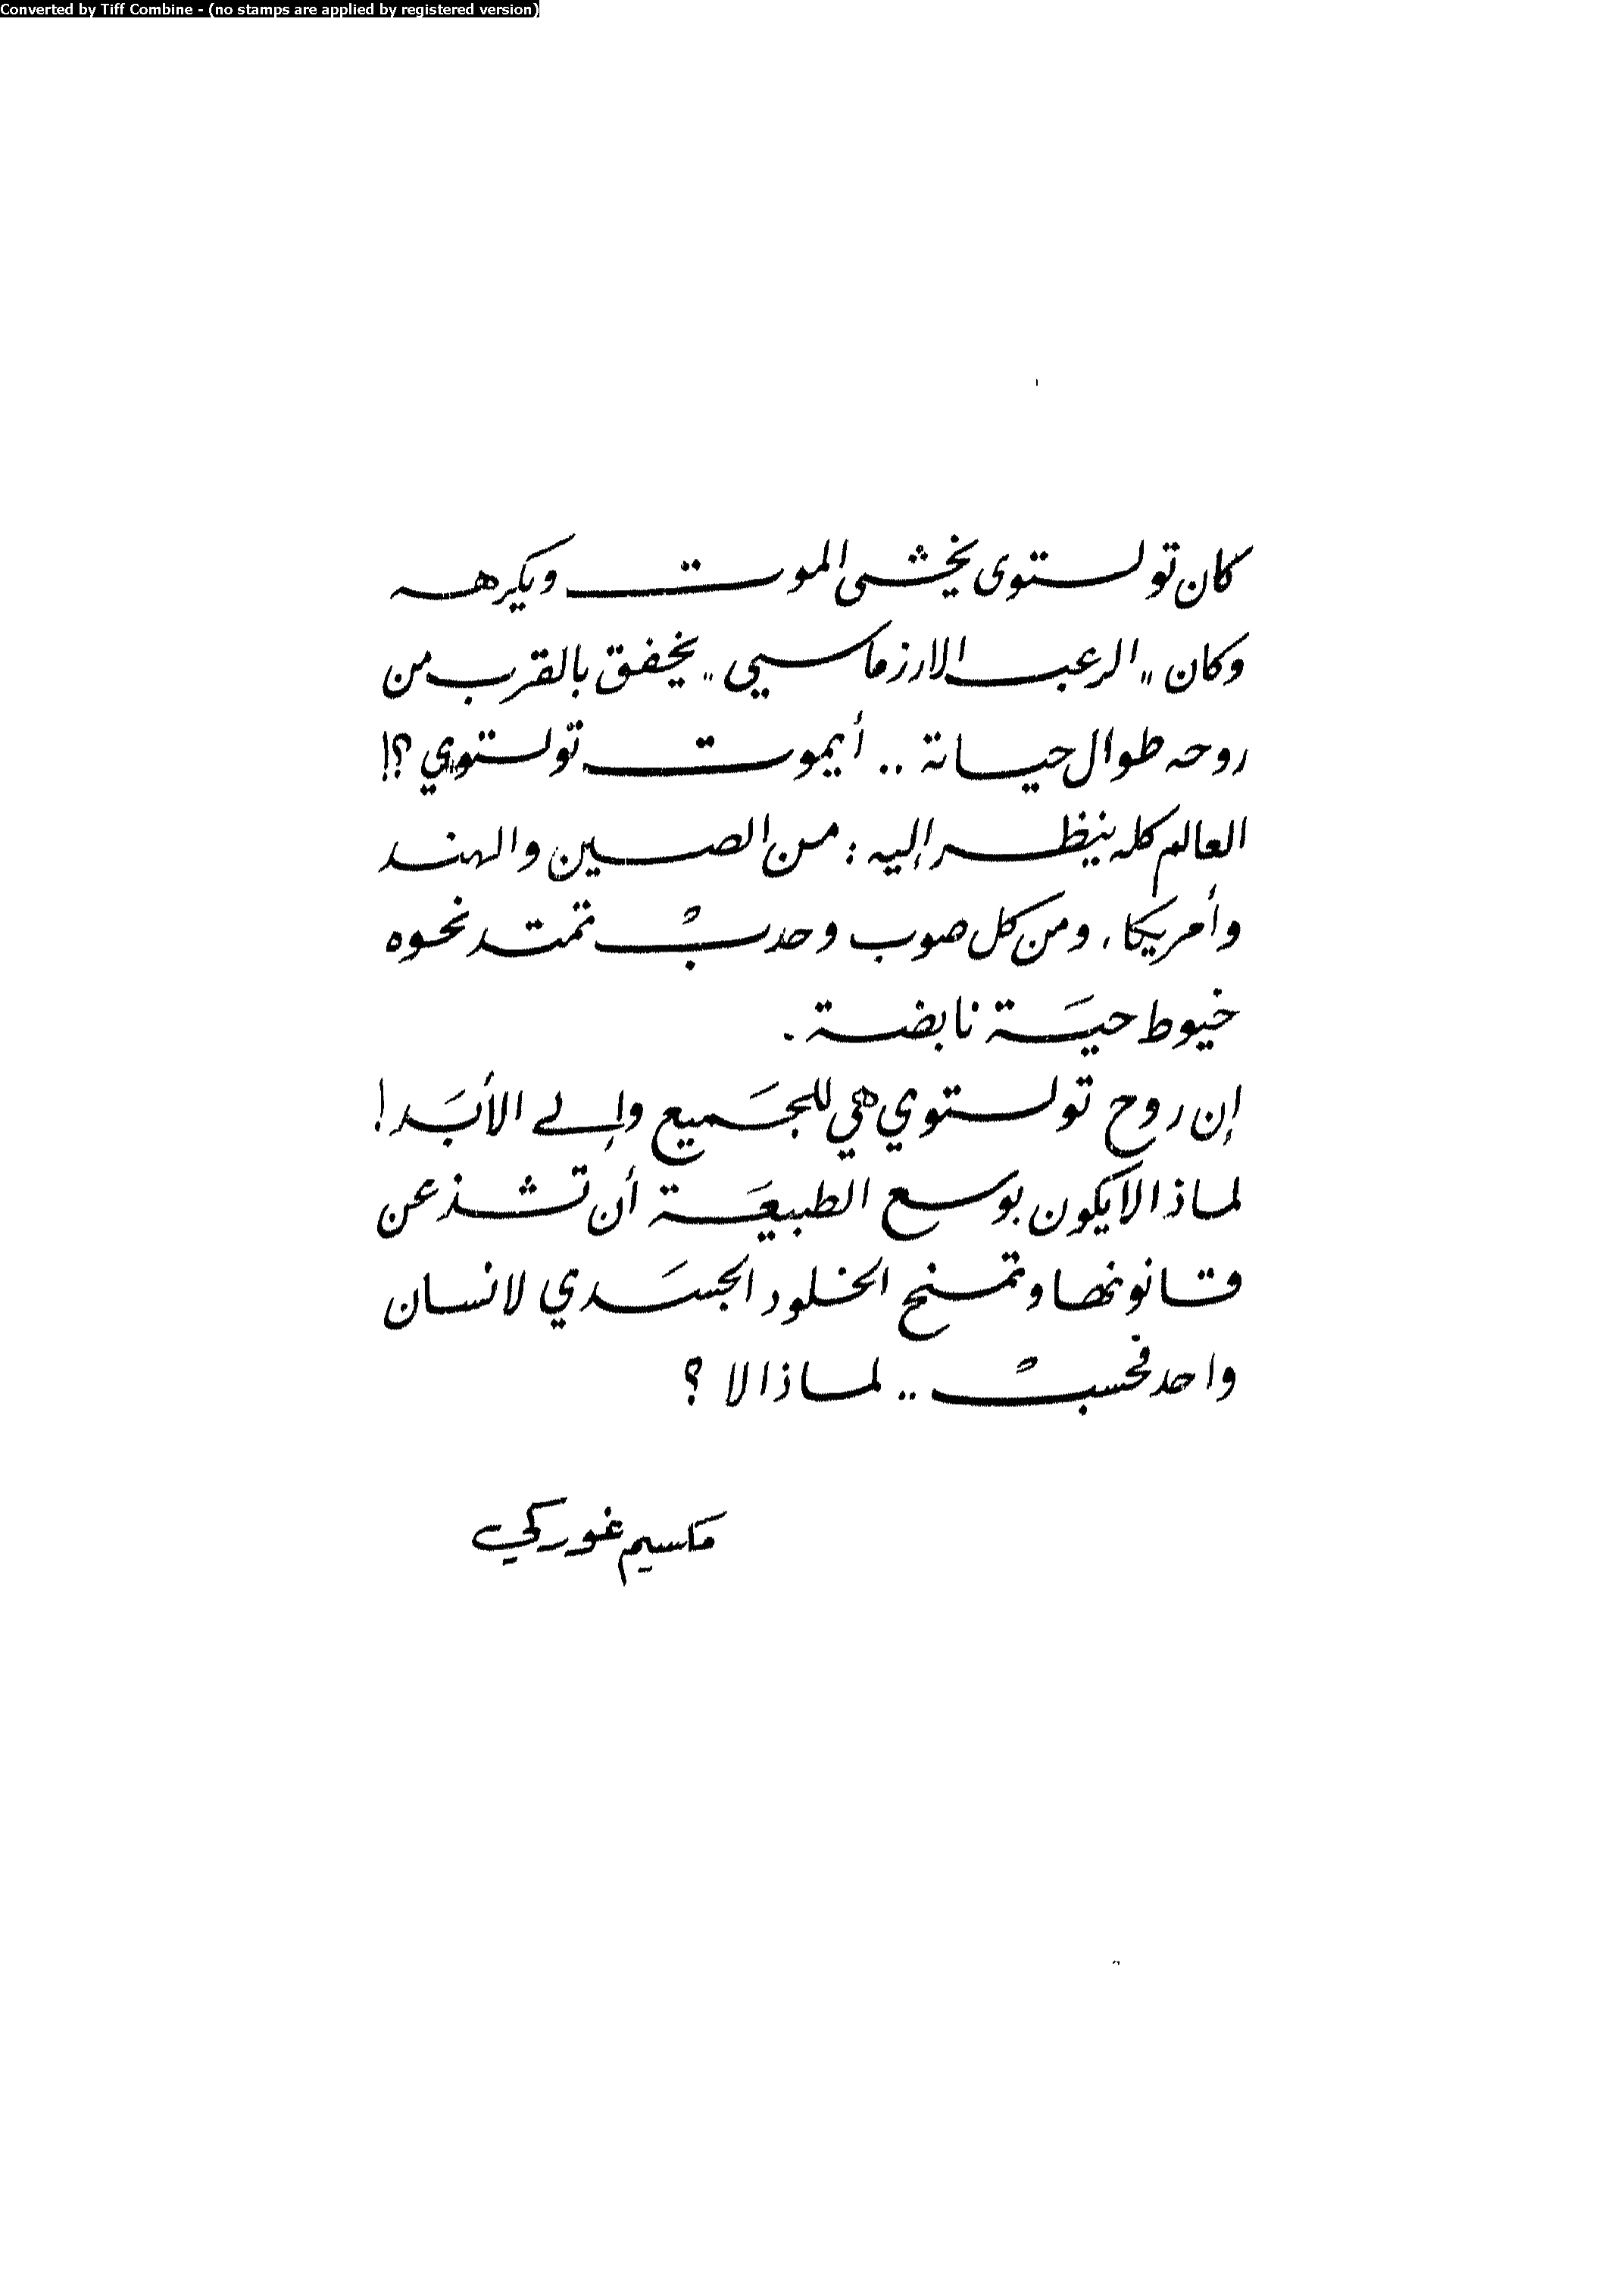 Converted by Tiff Combine - (no stamps are applied by registered version)
كان تولستوى يخشى الموت ويكرهه
وكان "الرعب الارزماسيي" يخفق بالقرب من
روحه طوال حياتة .. أيموت تولستوي ؟!
العالم كله ينظر إليه : من الصين والهند
وأمريكا، ومن كل صوب وحدبْ تمتد نحوه
خيوط حيَة نابضة .
إن روح تولستوي هي للجَميع وإلى الأبَد !
لماذا لا يكون بوسع الطبيعَة أن تشذ عن
قانونها وتمنح الخلود الجسَدي لانسان
واحد فحسبْ .. لماذا لا ؟
مكسيم غوركي